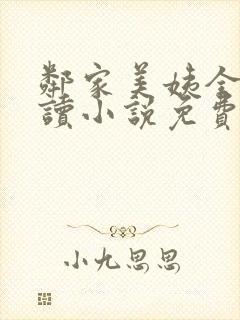 鄰家美姨全
讀小說免費
小九思思